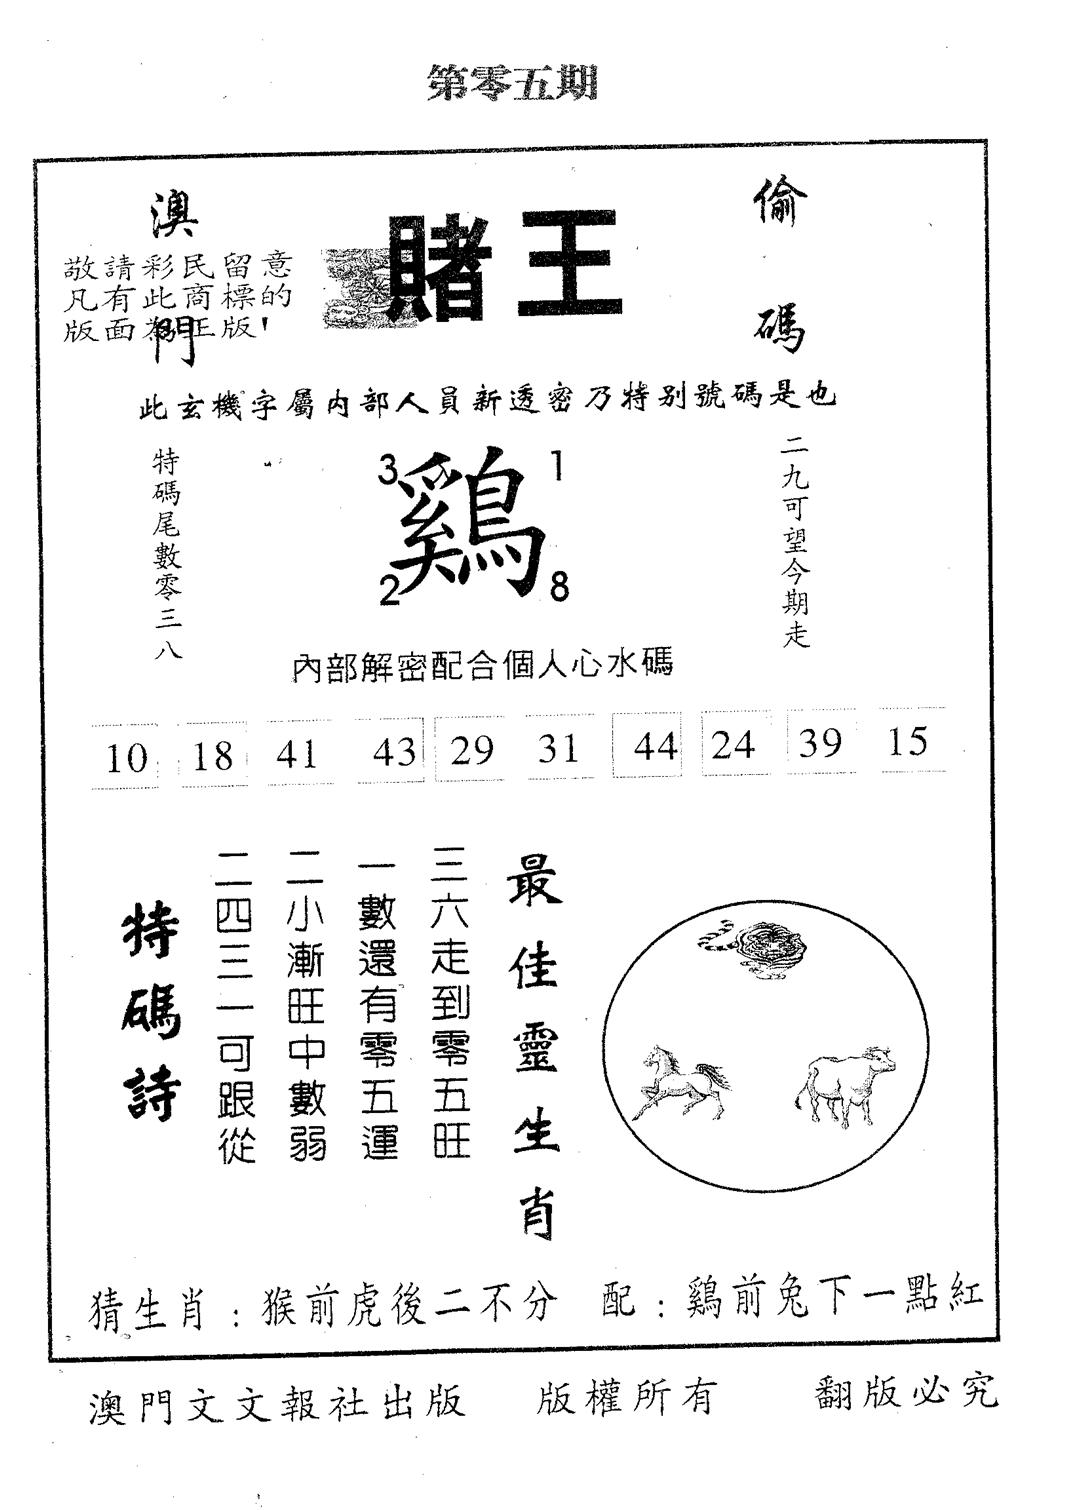 第零五期
澳門
賭王
偷碼
敬請彩民留意
凡有此商標的
版面為正版!
此玄機字屬内部人員新透密乃特别號碼是也
特碼尾數零三八
3 1
鷄
2 8
二九可望今期走
內部解密配合個人心水碼
10 18 41 43 29 31 44 24 39 15
最佳靈生肖
三六走到零五旺
一數還有零五運
二小漸旺中數弱
二四三一可跟從
特碼詩
猜生肖:猴前虎後二不分 配:鷄前兔下一點紅
澳門文文報社出版 版權所有 翻版必究